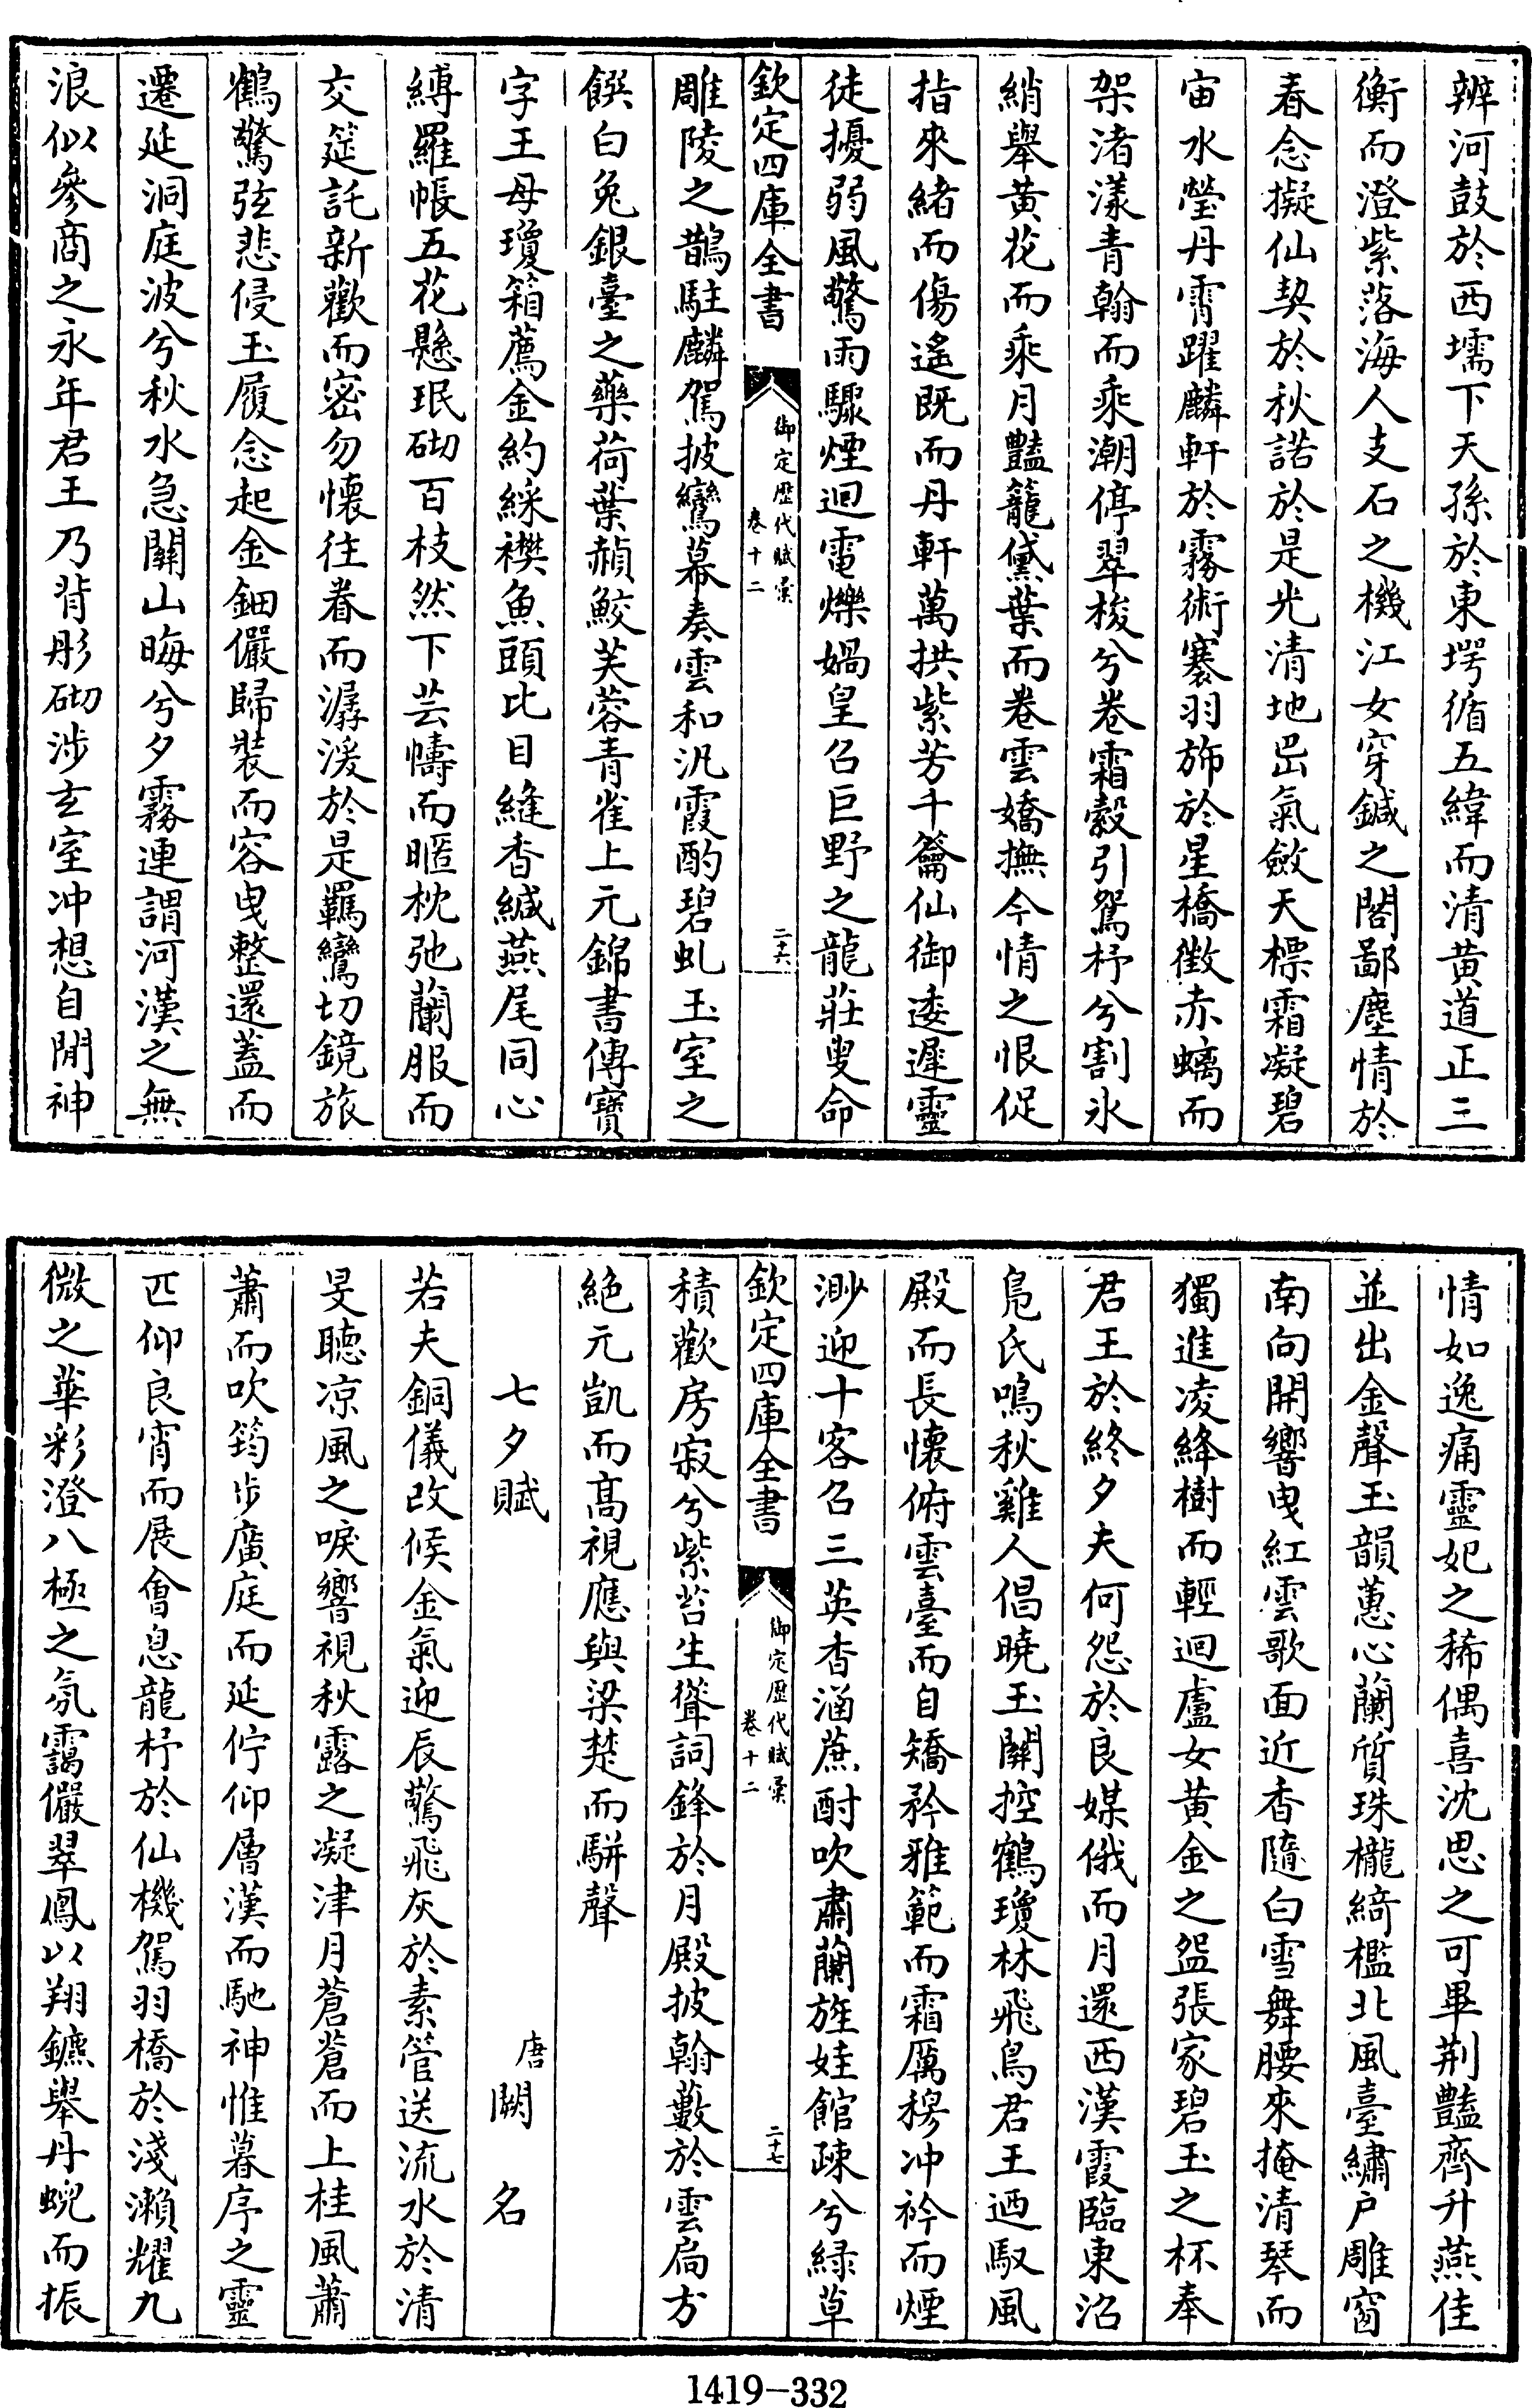 辨河鼓於西壖下天孫於東堮循五緯而清黄道正三
衡而澄紫落海人支石之機江女穿鍼之閣鄙塵情於
春念擬仙契於秋諾於是光清地岊氣斂天標霜凝碧
宙水瑩丹霄躍麟軒於霧術褰羽斾於星橋徵赤螭而
架渚漾青翰而乘潮停翠梭兮卷霜縠引鴛杼兮割氷
綃舉黄花而乘月豔籠黛葉而卷雲嬌撫今情之恨促
指來緒而傷遙既而丹軒萬拱紫芳千籥仙御逶遲靈
徒擾弱風驚雨驟煙迴電爍媧皇召巨野之龍莊叟命
欽定四庫全書
御定歴代賦彙
卷十二
二十六
雕陵之鵲駐麟駕披鸞幕奏雲和汎霞酌碧虬玉室之
饌白兔銀臺之藥荷葉赬鮫芙蓉青雀上元錦書傳寶
字王母瓊箱薦金約綵襻魚頭比目縫香緘燕尾同心
縛羅帳五花懸珉砌百枝然下芸幬而暱枕弛蘭服而
交筵託新歡而密勿懷往眷而潺湲於是羈鸞切鏡旅
鶴驚弦悲侵玉履念起金鈿儼歸裝而容曳整還蓋而
遷延洞庭波兮秋水急關山晦兮夕霧連謂河漢之無
浪似參商之永年君王乃背彤砌涉玄室冲想自閒神
情如逸痛靈妃之稀偶喜沈思之可畢荆豔齊升燕佳
並出金聲玉韻蕙心蘭質珠櫳綺檻北風臺繡户雕窗
南向開響曳紅雲歌面近香隨白雪舞腰來掩清琴而
獨進凌絳樹而輕迴盧女黄金之盌張家碧玉之杯奉
君王於終夕夫何怨於良媒俄而月還西漢霞臨東沼
鳬氏鳴秋雞人倡曉玉關控鶴瓊林飛鳥君王迺馭風
殿而長懷俯雲臺而自矯矜雅範而霜厲穆冲衿而煙
渺迎十客召三英香涵蔗酎吹肅蘭旌娃館疎兮緑草
欽定四庫全書
御定歴代賦彙
卷十二
二十七
積歡房寂兮紫苔生聳詞鋒於月殿披翰藪於雲扃方
絶元凱而高視應與梁楚而駢聲
七夕賦
唐闕名
若夫銅儀改候金氣迎辰驚飛灰於素管送流水於清
旻聽凉風之唳響視秋露之凝津月蒼蒼而上桂風蕭
蕭而吹筠步廣庭而延佇仰層漢而馳神惟暮序之靈
匹仰良宵而展會息龍杼於仙機駕羽橋於淺瀨耀九
微之華彩澄八極之氛靄儼翠鳳以翔鑣舉丹蜺而振
1419-332